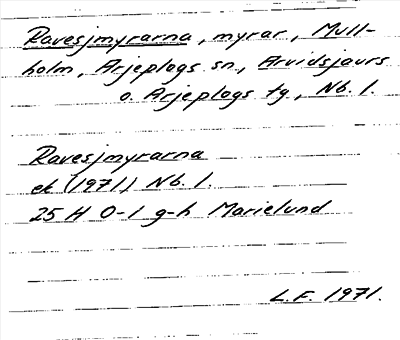 Ravesjmyrarna, myrar, Mull-
holm, Arjeplogs sn, Arvidsjaurs
o. Arjeplogs tg, Nb. l.
Ravesjmyrarna
ek (1971) Nb. l.
25 H 0-1 g-h Marielund
L.F. 1971.